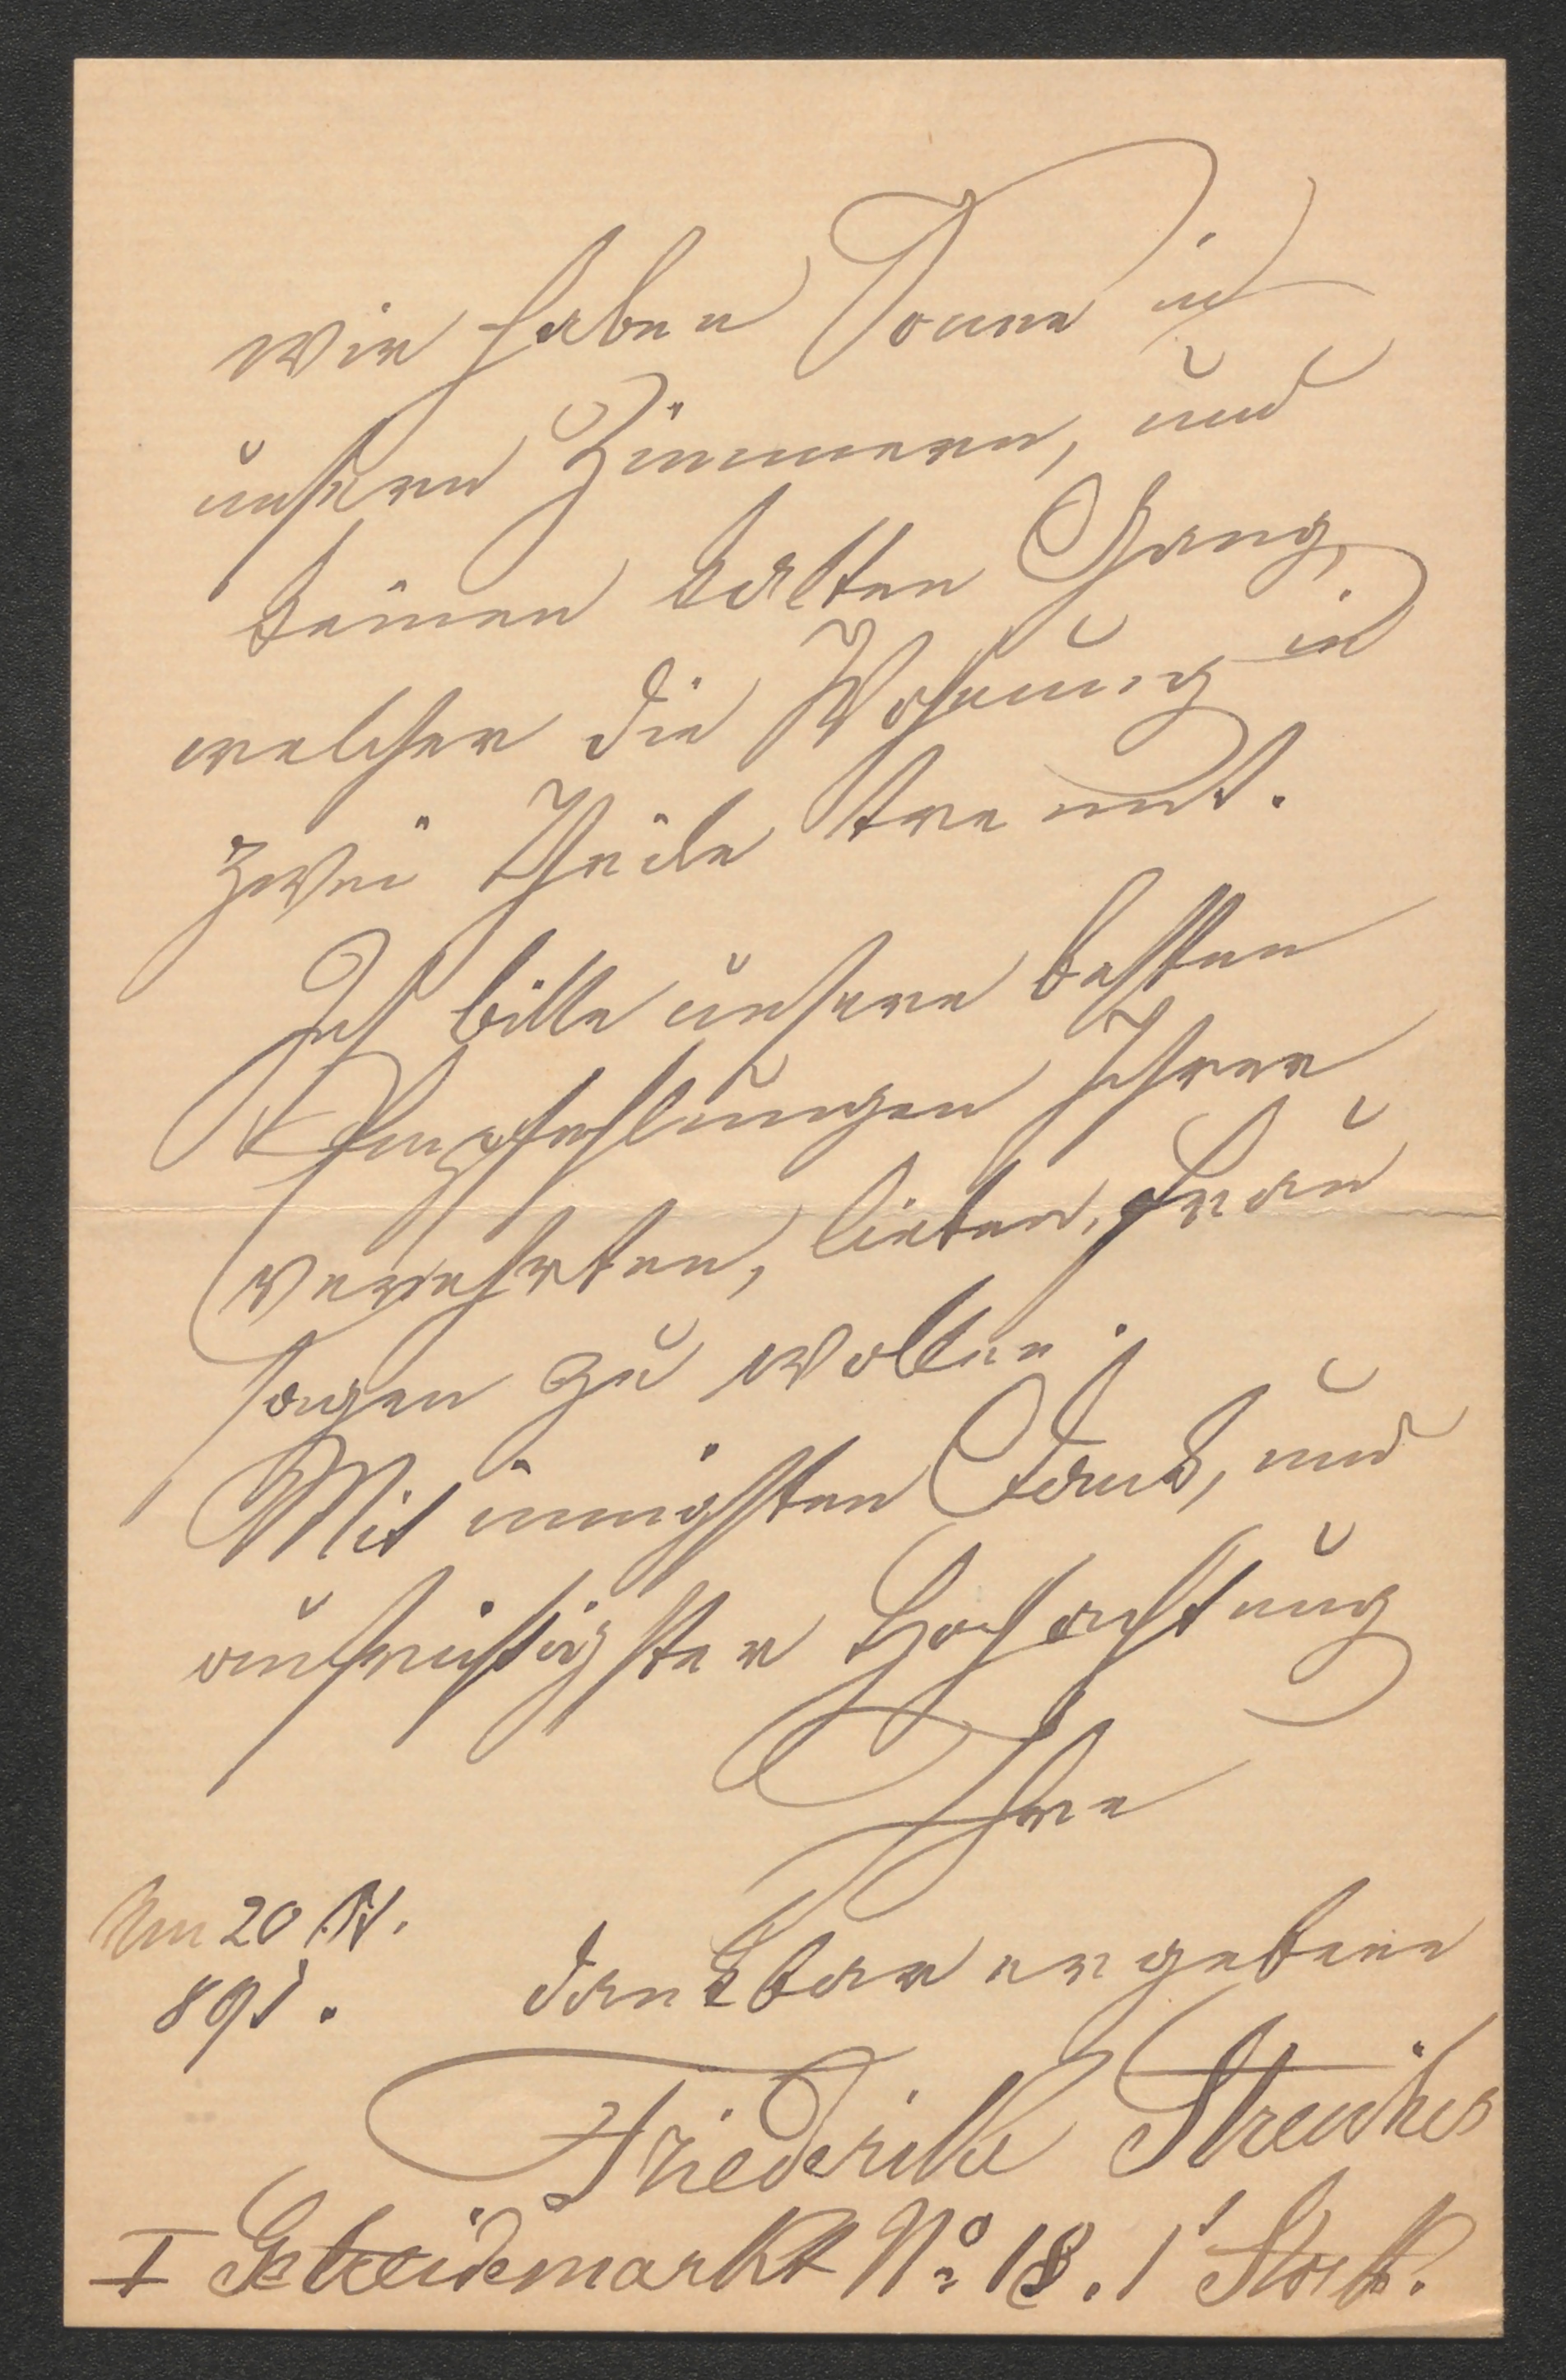 wir haben Sonne in
unsern Zimmern, und
keinen kalten Gang,
welcher die Wohnung in
zwei Theile trennt.
Ich bitte unsere besten
Empfehlungen Ihrer
verehrten, lieben, Frau
sagen zu wollen.
Mit innigsten Dank, und
aufrichtigster Hochachtung
Ihre
Am 20
891.
dankbar ergebene
Friederike
I Getreidemarkt No 18. 1 Stock.